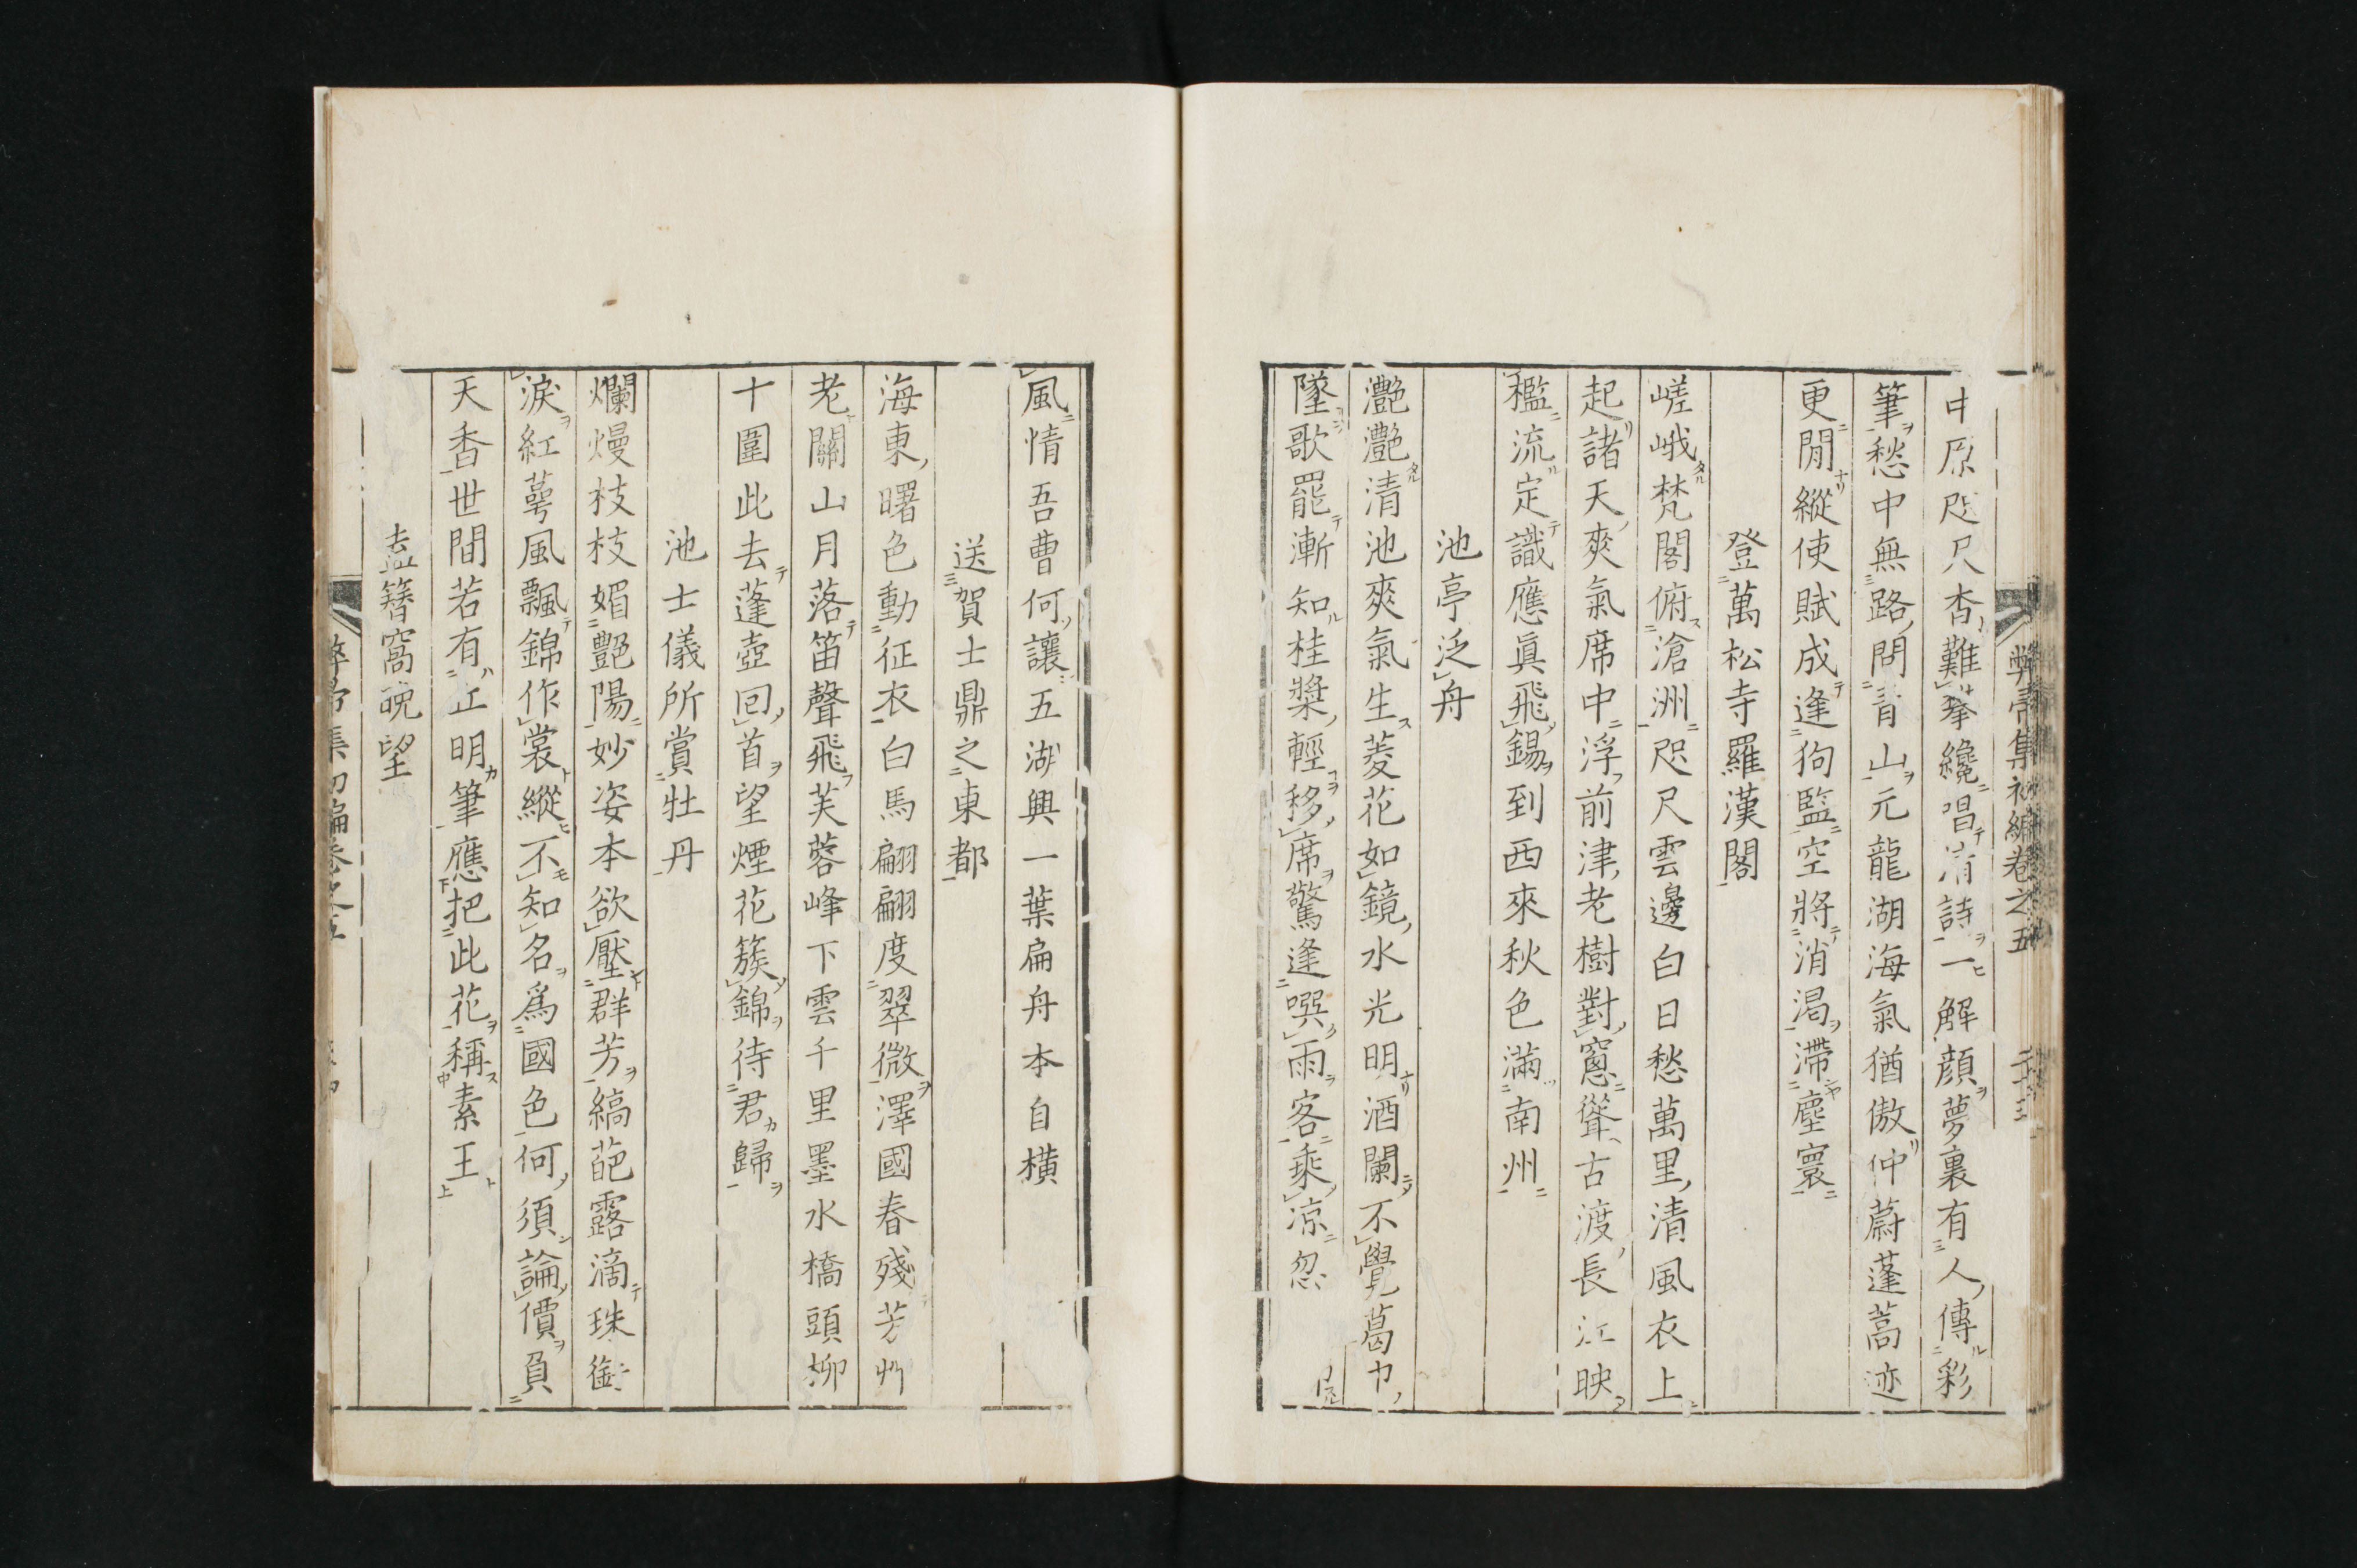 弊帚集初編卷之五
中原咫尺杳難攀纔唱清詩一解顔夢裏有人傳彩
筆愁中無路問青山元龍湖海氣猶傲仲蔚蓬蒿迹
更閒縱使賦成逢狗監空將消渇滯塵寰
登萬松寺羅漢閣
嵯峨梵閣俯滄洲咫尺雲邊白日愁萬里清風衣上
起諸天爽氣席中浮前津老樹對窻聳古渡長江映
檻流定識應眞飛錫到西來秋色滿南州
池亭泛舟
灔灔清池爽氣生菱花如鏡水光明酒闌不覺葛巾
墜歌罷漸知桂槳輕移席驚逢噀雨客乘凉忽
風情吾曹何讓五湖興一葉扁舟本自横
送賀士鼎之東都
海東曙色動征衣白馬翩翩度翠微澤國春殘芳艸
老關山月落笛聲飛芙蓉峰下雲千里墨水橋頭柳
十圍此去蓬壺回首望煙花簇錦待君歸
池士儀所賞牡丹
爛熳枝枝媚艷陽妙姿本欲壓群芳縞葩露滴珠銜
淚紅萼風飄錦作裳縱不知名爲國色何須論價負
天香世間若有丘明筆應把此花稱素王
盍簪窩晩望
弊帚集初編卷之五